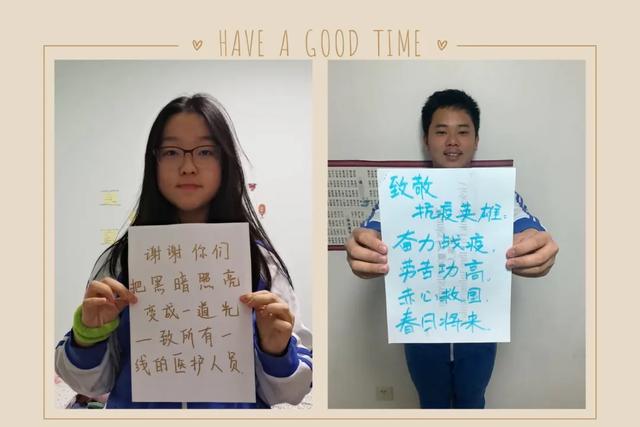 HAVE A GOOD TIME
谢谢你们
把黑暗照亮
变成一道光
一致所有一
线的医护人员
致敬
抗疫英雄:
奋力战疫,
劳苦功高,
赤心救国,
春日将来.